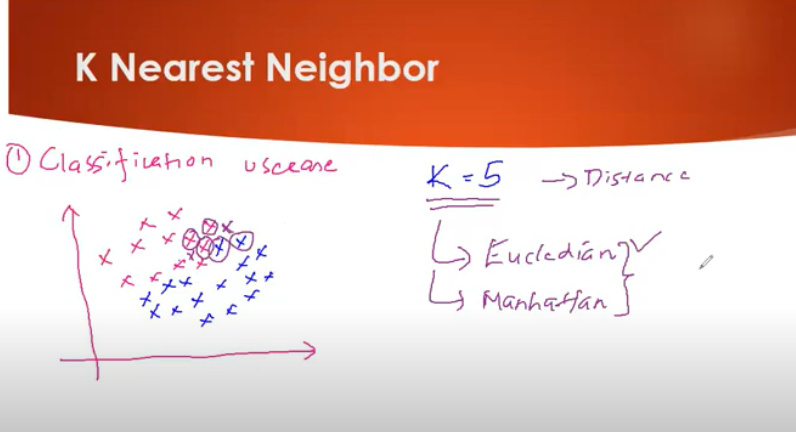 K Nearest Neighbor
① Classification usecase
K = 5 → Distance
Eucledian
Manhattan